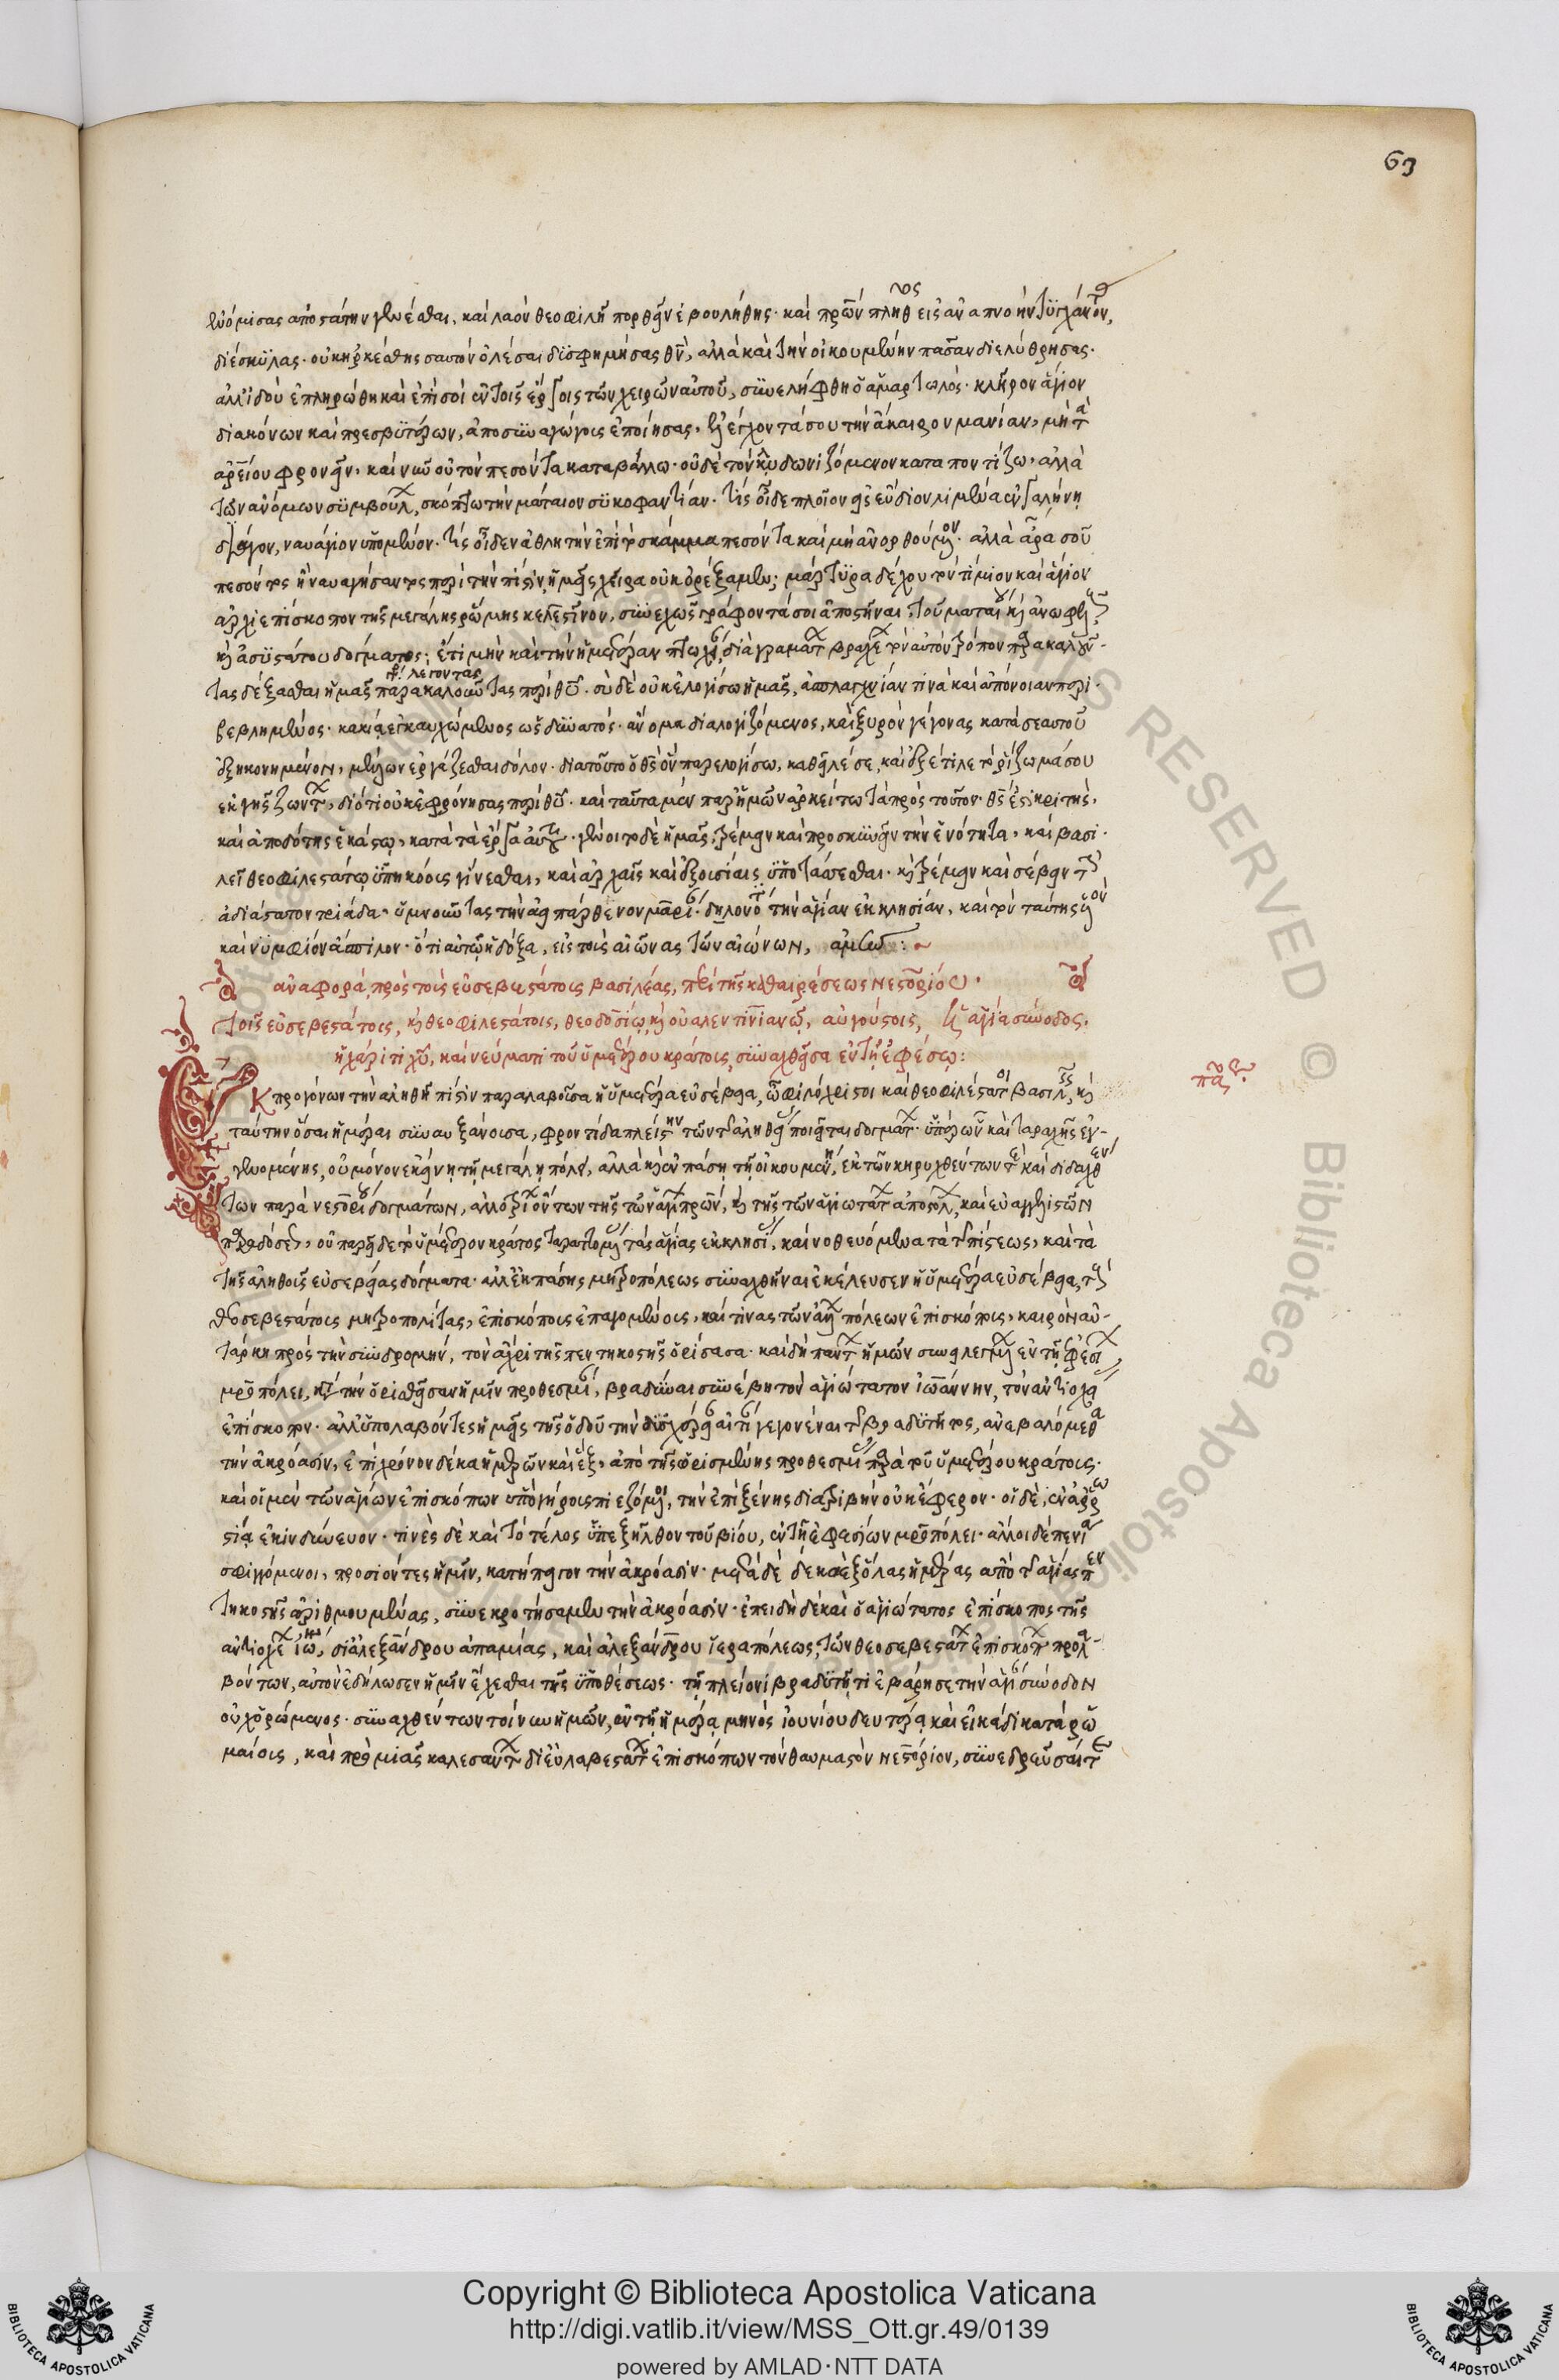 63
ἐνόμισας ἀποστάτην γενέσθαι, καὶ λαὸν θεοφιλῆ πορθεῖν ἐβουλήθης· καὶ πλῆθος εἰς ἀναπνοὴν τυγχάνον,
διέσκυλας· οὐκ ἠρκέσθης σαυτὸν ὀλέσαι δυσφημήσας θν, ἀλλὰ καὶ τὴν οἰκουμένην πᾶσαν
ἀλλ' ἰδοὺ ἐπληρώθη καὶ ἐπὶ σοὶ ἐν τοῖς ἔργοις τῶν χειρῶν αὐτοῦ, συνελήφθη ὁ ἁμαρτωλός· κλῆρον ἅγιον
διακόνων καὶ πρεσβυτέρων, ἀποσυναγώγους ἐποίησας, ἐλέγχοντά σου τὴν ἄκαιρον μανίαν, μὴ τὰ
ἀρείου φρονεῖν, καὶ νῦν οὐ τὸν πεσόντα καταβάλλω· οὐδὲ τὸν κλυδωνιζόμενον καταποντίζω, ἀλλὰ
τῶν ἀνόμων συμβούλ, σκόπτω τὴν μάταιον συκοφαντίαν· τίς οἶδε πλοῖον εἰς εὔδιον λιμένα ἐν γαλήνῃ
διάγον, ναυάγιον ὑπομένον· τίς οἶδεν ἀθλητὴν ἐπὶ τὸ σκάμμα πεσόντα καὶ μὴ ἀνορθούμενον· ἀλλὰ ἆρα σοῦ
πεσόντος ἢ ναυαγήσαντος περὶ τὴν πίστιν, ἡμεῖς χεῖρα οὐκ ὀρέξαμεν; μάρτυρα δέχου τὸν τίμιον καὶ ἅγιον
ἀρχιεπίσκοπον τῆς μεγάλης ῥώμης κελεστῖνον, συνεχῶς γράφοντά σοι ἀποστῆναι τοῦ ματαίου κ ἀνωφελ
κ ἀσυστάτου δόγματος; ἔτι μὴν καὶ τὴν ἡμετέραν πτωχ, διὰ γραμμάτ βραχέ τὸν αὐτὸν τρόπον παρακαλοῦν-
λέγοντας
τας δέξασθαι ἡμᾶς παρακαλοῦντας περὶ θυ· σὺ δὲ οὐκ ἐλογίσω ἡμᾶς, ἀσπλαγχνίαν τινὰ καὶ ἀπόνοιαν περι-
βεβλημένος· κακίᾳ ἐγκαυχώμενος ὡς δυνατός· ἄνομα διαλογιζόμενος, καὶ ξυρὸν γέγονας κατὰ σεαυτοῦ
ἐξηκονημένον, μέλλων ἐργάζεσθαι δόλον· διατοῦτο ὁ θς ὃν παρελογίσω, καθεῖλέ σε, καὶ ἐξέτιλε τὸ ῥίζωμά σου
ἐκ γῆς ζώντ, διότι οὐκ ἐφρόνησας περὶ θυ· καὶ ταῦτα μὲν παρ' ἡμῶν ἀρκείτω τὰ πρὸς τοῦτον· θς ἐστι κριτής,
καὶ ἀποδότης ἑκάστῳ, κατὰ τὰ ἔργα αὐτοῦ· γένοιτο δὲ ἡμᾶς, τρέμειν καὶ προσκυνεῖν τὴν ἑνότητα, καὶ βασι-
λεῖ θεοφιλεστάτῳ ὑπηκόους γίνεσθαι, καὶ ἀρχαῖς καὶ ἐξουσίαις ὑποτάσσεσθαι· κ τρέμειν καὶ σέβειν τ
ἀδιάστατον τριάδα, ὑμνοῦντας τὴν ἀειπάρθενον μαρί· δηλονότ τὴν ἁγίαν ἐκκλησίαν, καὶ τὸν ταύτης υον
καὶ νυμφίον ἄσπιλον· ὅτι αὐτῷ ἡ δόξα, εἰς τοὺς αἰῶνας τῶν αἰώνων, ἀμήν :
ἀναφορὰ, πρὸς τοὺς εὐσεβεστάτους βασιλέας, περὶ τῆς καθαιρέσεως νεστορίου·
τοῖς εὐσεβεστάτοις, κ θεοφιλεστάτοις, θεοδοσίῳ, κ οὐαλεντινιανῷ, αὐγούστοις, ἡ ἁγία σύνοδος,
ἡ χάριτι χυ, καὶ νεύματι τοῦ ὑμετέρου κράτους, συναχθεῖσα ἐν τῇ ἐφέσῳ:
Ἐκ προγόνων τὴν ἀληθῆ πίστιν παραλαβοῦσα ἡ ὑμετέρα εὐσέβεια, ὦ φιλόχριστοι καὶ θεοφιλέστατοι βασιλ, κ
ταύτην ὁσημέραι συναυξάνουσα, φροντίδα πλείστην τῶν τ ἀληθεί ποιεῖται δογμάτ· ὑπὲρ ὧν καὶ ταραχῆς ἐγ-
γενομένης, οὐ μόνον ἐκείνῃ τῇ μεγάλῃ πόλει, ἀλλὰ κ ἐν πάσῃ τῇ οἰκουμένῃ, ἐκ τῶν κηρυχθέντων τε καὶ διδαχθέν
των παρὰ νεστορίου δογμάτων, ἀλλοτρίων ὄντων τῆς τῶν ἁγί πρων, κ τῆς τῶν ἁγιωτάτ ἀποστόλ, καὶ εὐαγγελιστῶν
παραδόσε, οὐ παρεῖδε τὸ ὑμέτερον κράτος ταραττομέν τὰς ἁγίας ἐκκλησί, καὶ νοθευόμενα τὰ τ πίστεως, καὶ τὰ
τῆς ἀληθοῦς εὐσεβείας δόγματα· ἀλλ' ἐκ πάσης μητροπόλεως συναχθῆναι ἐκέλευσεν ἡ ὑμετέρα εὐσέβεια, τ
θεοσεβεστάτους μητροπολίτας, ἐπισκόπους ἐπαγομένους, καί τινας τῶν πόλεων ἐπισκόπους, καιρὸν αὐ-
τάρκη πρὸς τὴν συνδρομήν, τὸν ἄχρι τῆς πεντηκοστῆς ὁρίσασα· καὶ δὴ πάντ ἡμῶν συνειλεγμέν ἐν τῇ ἐφεσί
μρο πόλει, κατὰ τὴν ὁρισθεῖσαν ἡμῖν προθεσμί, βραδῦναι συνέβη τὸν ἁγιώτατον ἰωάννην, τὸν ἀντιοχεί
ἐπίσκοπον· ἀλλ' ὑπολαβόντες ἡμεῖς τῆς ὁδοῦ τὴν δυσχέρει αἰτί γεγονέναι τ βραδυτῆτος, ἀνεβαλόμεθα
τὴν ἀκρόασιν, ἐπὶ χρόνον δέκα ἡμερῶν καὶ ἕξ, ἀπὸ τῆς ὁρισμένης προθεσμί παρὰ τοῦ ὑμετέρου κράτους·
καὶ οἱ μὲν τῶν ἁγίων ἐπισκόπων ὑπὸ γήρους πιεζόμενοι, τὴν ἐπὶ ξένης διατριβὴν οὐκ ἔφερον· οἱ δὲ, ἐν ἀρρω
στίᾳ ἐκινδύνευον· τινὲς δὲ καὶ τὸ τέλος ὑπεξῆλθον τοῦ βίου, ἐν τῇ ἐφεσίων μρο πόλει· ἄλλοι δὲ πενί
σφιγγόμενοι, προσιόντες ἡμῖν, κατήπειγον τὴν ἀκρόασιν· μετὰ δὲ δεκαὲξ ὅλας ἡμέρας ἀπὸ τ ἁγίας πεν
τηκοστῆς ἀριθμουμένας, συνεκροτήσαμεν τὴν ἀκρόασιν· ἐπειδὴ δὲ καὶ ὁ ἁγιώτατος ἐπίσκοπος τῆς
ἀντιοχέ ἰω, δι' ἀλεξάνδρου ἀπαμίας, καὶ ἀλεξάνδρου ἱεραπόλεως, τῶν θεοσεβεστάτ ἐπισκόπ προλα-
βόντων, αὐτὸν ἐδήλωσεν ἡμῖν ἔχεσθαι τῆς ὑποθέσεως· τῇ πλείονι βραδυτῆτι ἐβάρησε τὴν ἁγί σύνοδον
οὐχ ὁρώμενος· συναχθέντων τοίνυν ἡμῶν, ἐν τῇ ἡμέρᾳ μηνὸς ἰουνίου δευτέρᾳ καὶ εἰκάδι κατὰ ῥω
μαίους, καὶ πρὸ μιᾶς καλεσάντ δι' εὐλαβεστάτ ἐπισκόπων τὸν θαυμαστὸν νεστόριον, συνεδρεῦσαί τε
Copyright © Biblioteca Apostolica Vaticana
http://digi.vatlib.it/view/MSS_Ott.gr.49/0139
powered by AMLAD·NTT DATA
BIBLIOTECA APOSTOLICA VATICANA
BIBLIOTECA APOSTOLICA VATICANA